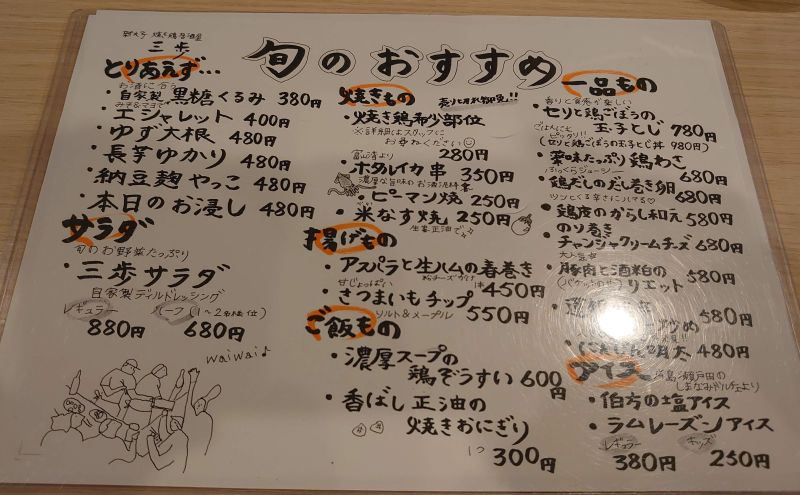 三歩
旬のおすすめ
とりあえず…
お酒に合う
・自家製 黒糖くるみ 380円
みそ&マヨで
・エシャレット 400円
・ゆず大根 480円
・長芋ゆかり 480円
・納豆麹やっこ 480円
・本日のお浸し 480円
サラダ
旬のお野菜たっぷり
・三歩サラダ
自家製ディルドレッシング
レギュラー ハーフ(1〜2名様位)
880円 680円
waiwai♪
焼きもの
・焼き鶏希少部位
※詳細はスタッフに
お尋ねください
280円
富山湾より
・ホタルイカ串 350円
濃厚な旨味のお酒泥棒
・ピーマン焼 250円
・米なす焼 250円
生姜正油で
揚げもの
・アスパラと生ハムの春巻き
粉チーズがけ 1本 450円
甘じょっぱい
・さつまいもチップ 550円
ソルト&メープル
ご飯もの
・濃厚スープの
鶏ぞうすい 600円
・香ばし正油の
焼きおにぎり
1つ 300円
一品もの
香りと食感が楽しい
・セリと鶏ごぼうの
玉子とじ 780円
ごはんにも
ピッタリ!!
(セリと鶏ごぼうの玉子とじ丼 980円)
・薬味たっぷり鶏わさ 680円
ふっくらジューシー
・鶏だしのだし巻き卵 680円
ツンとくる辛さにハマる♡
・鶏皮のからし和え 580円
・のり巻き
チャンジャクリームチーズ 680円
大人気
・豚肉と酒粕の
リエット 580円
(バケット付き)
炒め 580円
明太 480円
アイス
瀬戸田の
しまなみドルチェより
・伯方の塩アイス
・ラムレーズンアイス
レギュラー キッズ
380円 250円